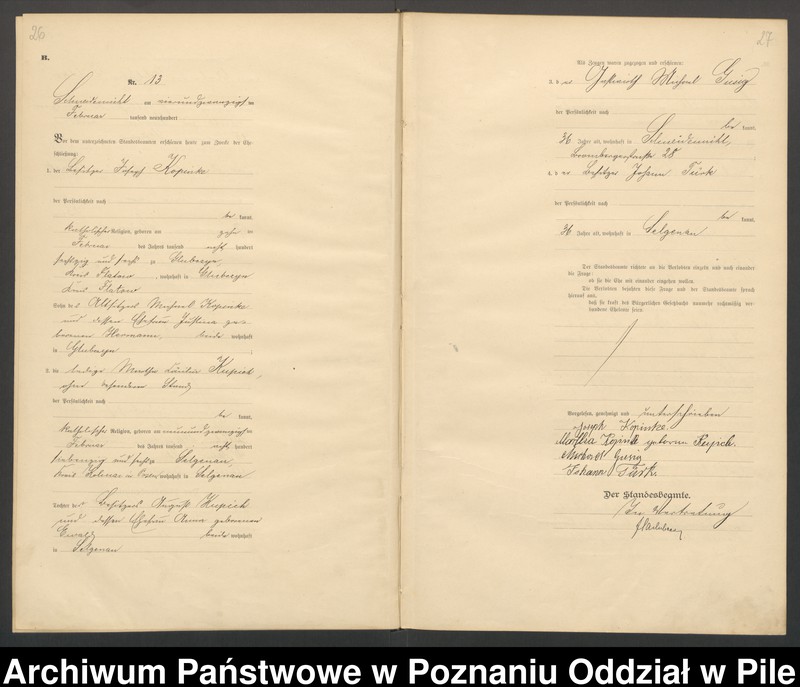 26
B.
Nr. 13
Schneidemühl am vierundzwanzigsten
Februar tausend neunhundert
Vor dem unterzeichneten Standesbeamten erschienen heute zum Zwecke der Ehe-
schließung:
1. der Besitzer Joseph Kopinke
der Persönlichkeit nach
be kannt,
katholischer Religion, geboren am
Februar des Jahres tausend acht hundert
sechszig und sechs zu Glubczyn,
Kreis Flatow, wohnhaft in Glubczyn
Kreis Flatow
Sohn des Altsitzers Michael Kopinke
und dessen Ehefrau Justina ge-
borenen Hermann, beide wohnhaft
in Glubczyn
2. die ledige Martha Kupich,
ohne besonderen Stand,
der Persönlichkeit nach
be kannt,
katholischer Religion, geboren am neunundzwanzigsten
Februar des Jahres tausend acht hundert
siebenzig und sechs zu Selgenau,
Kreis Kolmar in Posen, wohnhaft in Selgenau
Tochter des Besitzers August Kupich
und dessen Ehefrau Anna geborenen
Ewald beide wohnhaft
in Selgenau
27
Als Zeugen waren zugezogen und erschienen:
3. der Michael Gusig
der Persönlichkeit nach
be kannt,
36 Jahre alt, wohnhaft in Schneidemühl,
Brombergerstraße 28
4. der Besitzer Johann Türk
der Persönlichkeit nach
be kannt,
36 Jahre alt, wohnhaft in Selgenau
Der Standesbeamte richtete an die Verlobten einzeln und nach einander
die Frage:
ob sie die Ehe mit einander eingehen wollen.
Die Verlobten bejahten diese Frage und der Standesbeamte sprach
hierauf aus,
daß sie kraft des Bürgerlichen Gesetzbuchs nunmehr rechtmäßig ver-
bundene Eheleute seien.
Vorgelesen, genehmigt und unterschrieben
Joseph Kopinke.
Martha Kopinke geborene Kupich.
Michael Gusig
Johann Türk.
Der Standesbeamte.
In Vertretung
Archiwum Państwowe w Poznaniu Oddział w Pile